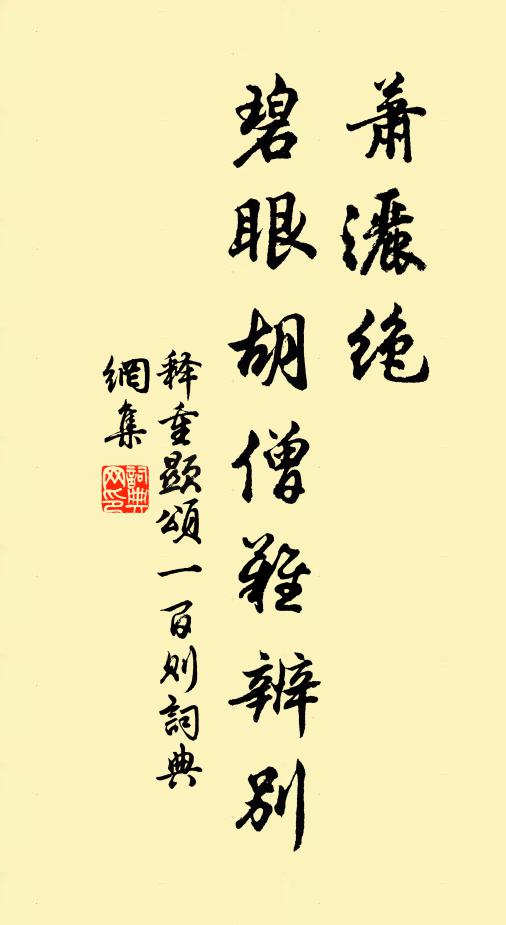 蕭灑絶
碧眼胡僧難辨别
釋重顯頌一百则詞典
網集
詞典網印